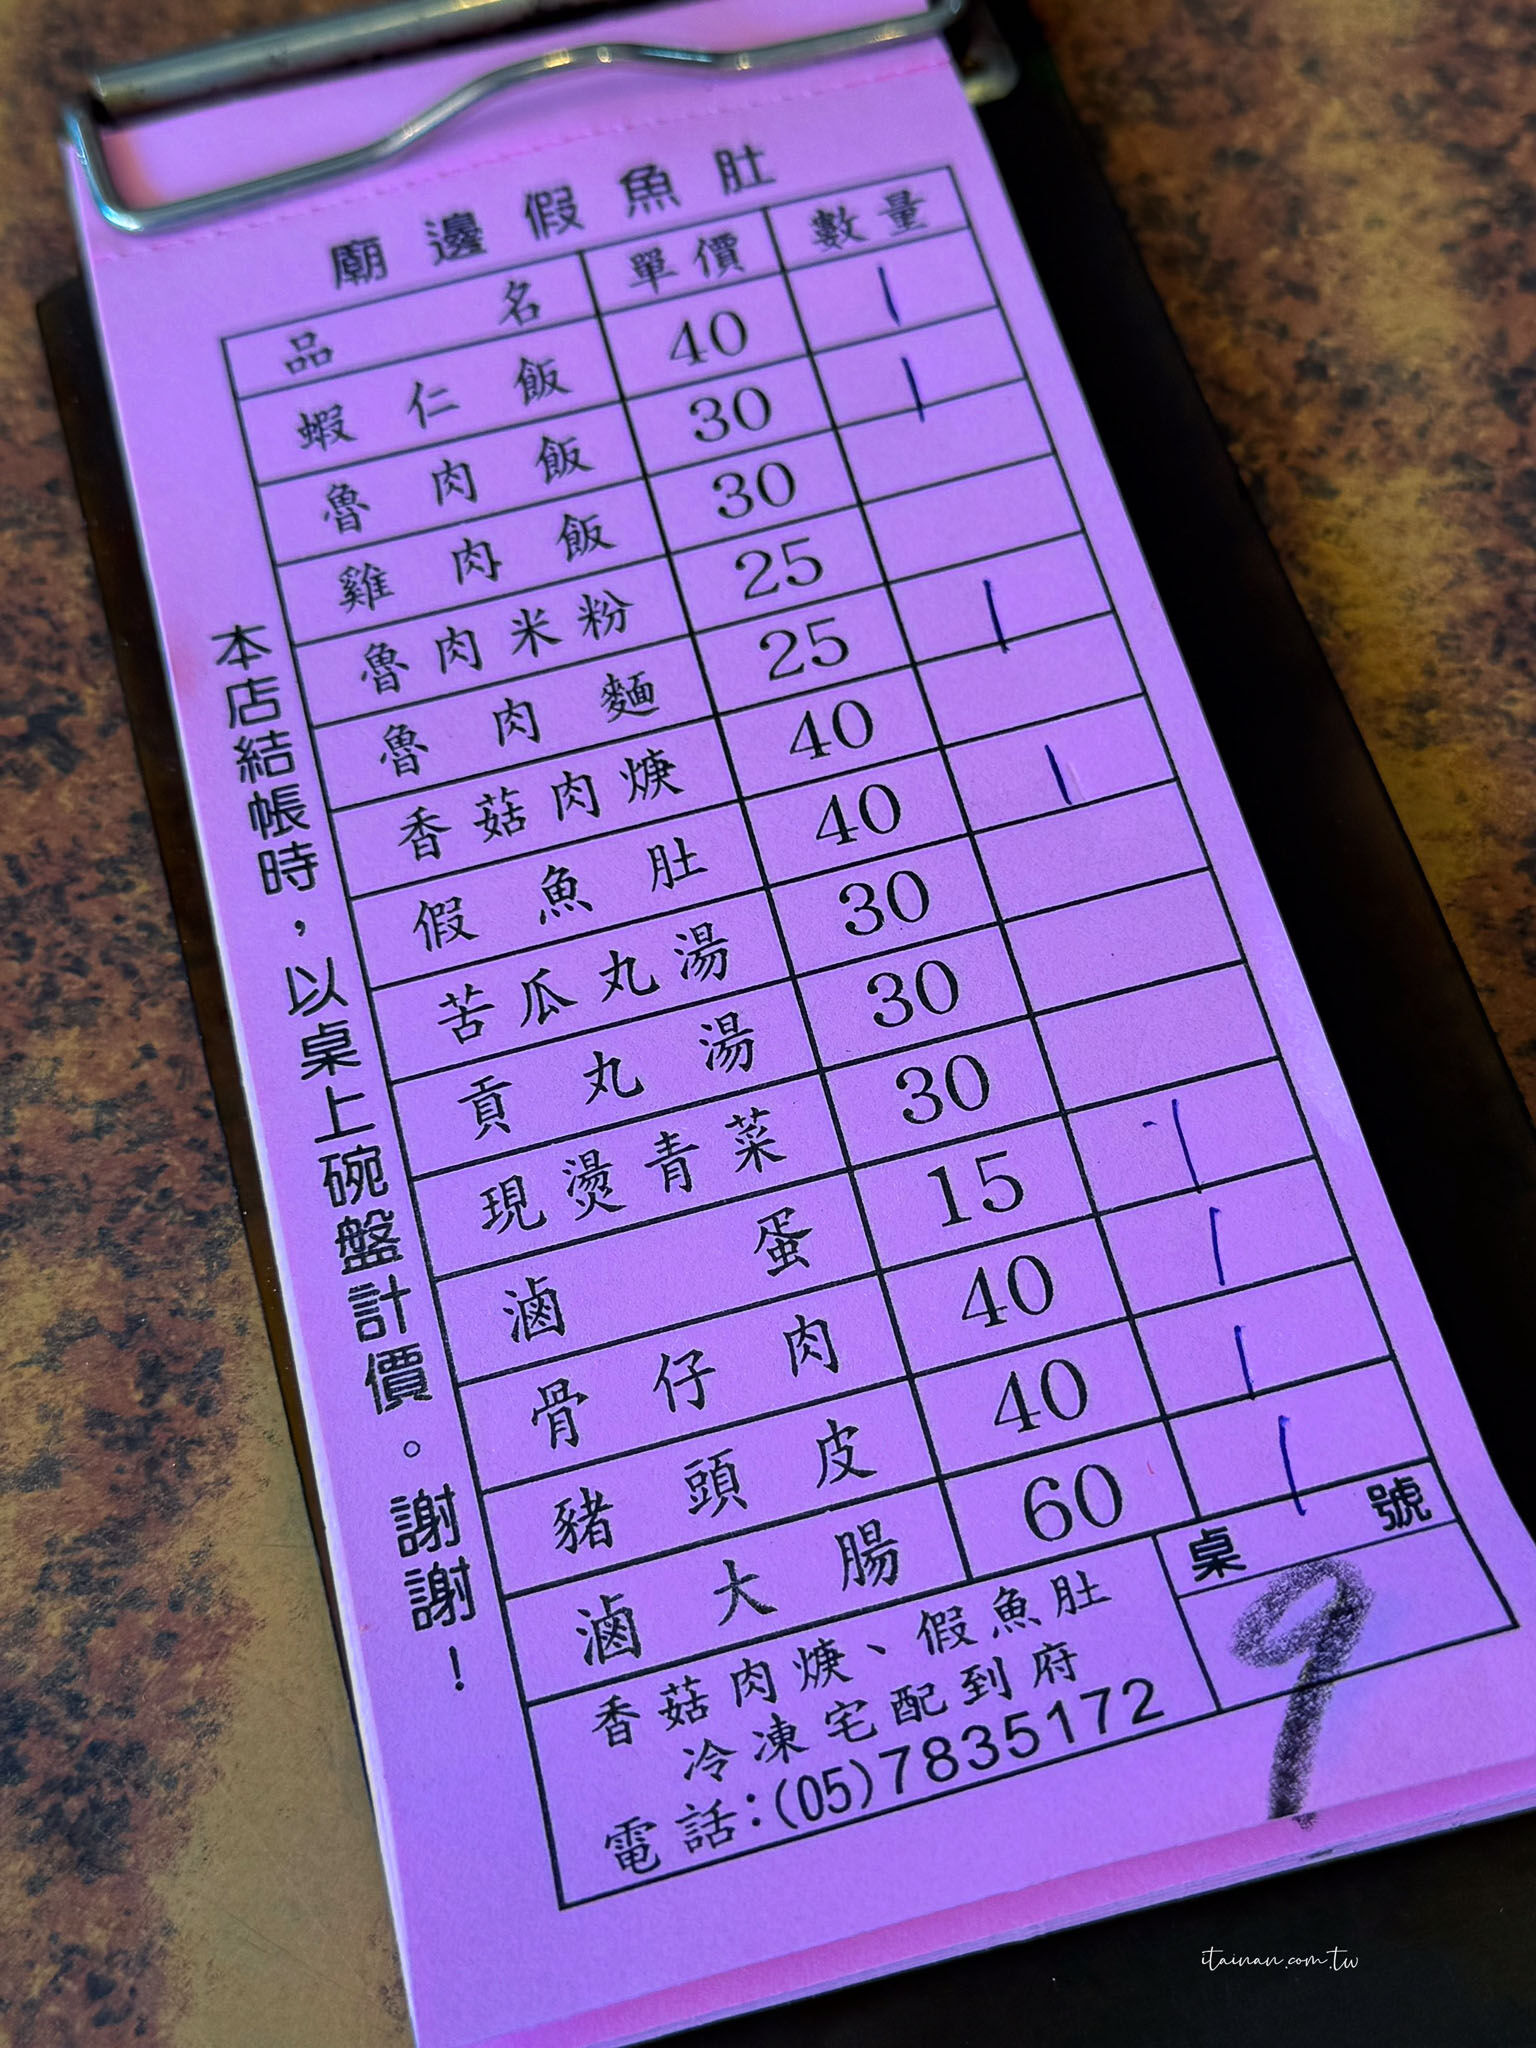 廟邊假魚肚
品名 單價 數量
蝦仁飯 40 1
魯肉飯 30 1
雞肉飯 30
魯肉米粉 25
魯肉麵 25 1
香菇肉焿 40
假魚肚 40 1
苦瓜丸湯 30
貢丸湯 30
現燙青菜 30
滷蛋 15 1
骨仔肉 40 1
豬頭皮 40 1
滷大腸 60 1
香菇肉焿、假魚肚
冷凍宅配到府
電話:(05)7835172
桌號
9
本店結帳時,以桌上碗盤計價。謝謝!
itainan.com.tw